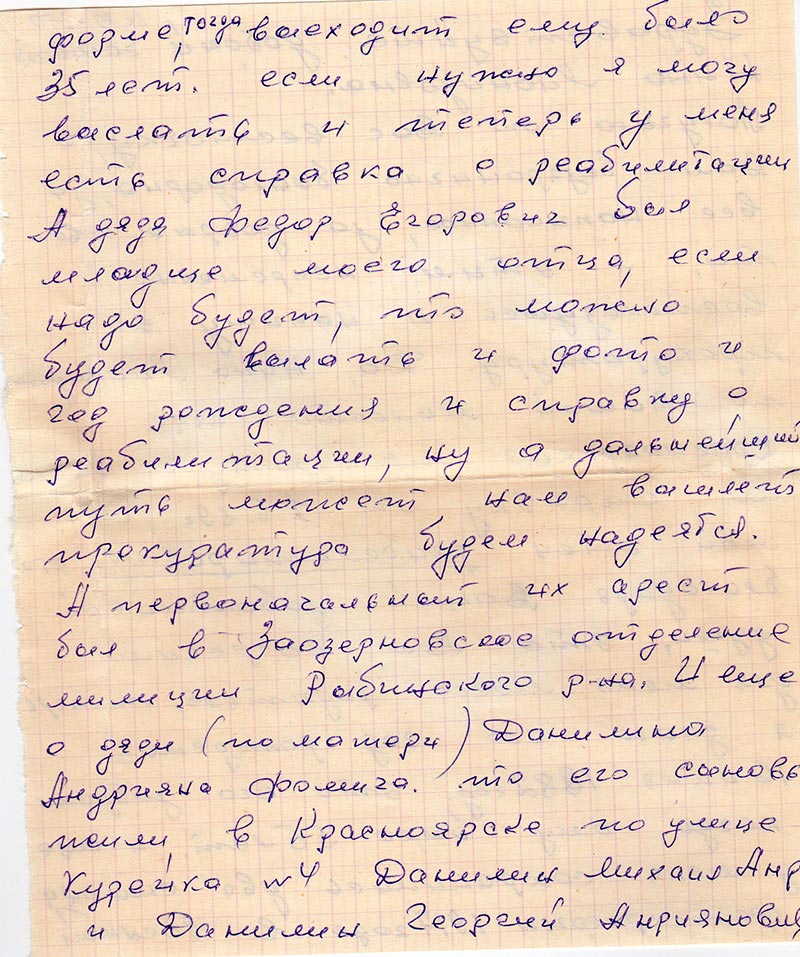 форме, тогда высходит ему было
35 лет. если нужно я могу
выслать и теперь у меня
есть справка о реабилитации
А дядя Федор Егорович был
младще моего отца, если
надо будет, то можно
будет вылать и фото и
год рождения и справку о
реабилитации, ну а дальнейший
путь может нам вышлет
прокуратура будем надеятся.
А первоначальный их арест
был в Заозерновское отделение
милиции Рыбинского р-на. И еще
о дяди (по матери) Данилина
Андрияна Фомича. то его сыновь
жили в Красноярске по улице
Курейка №4 Данилин Михаил Анд
и Данилин Георгий Андриянович